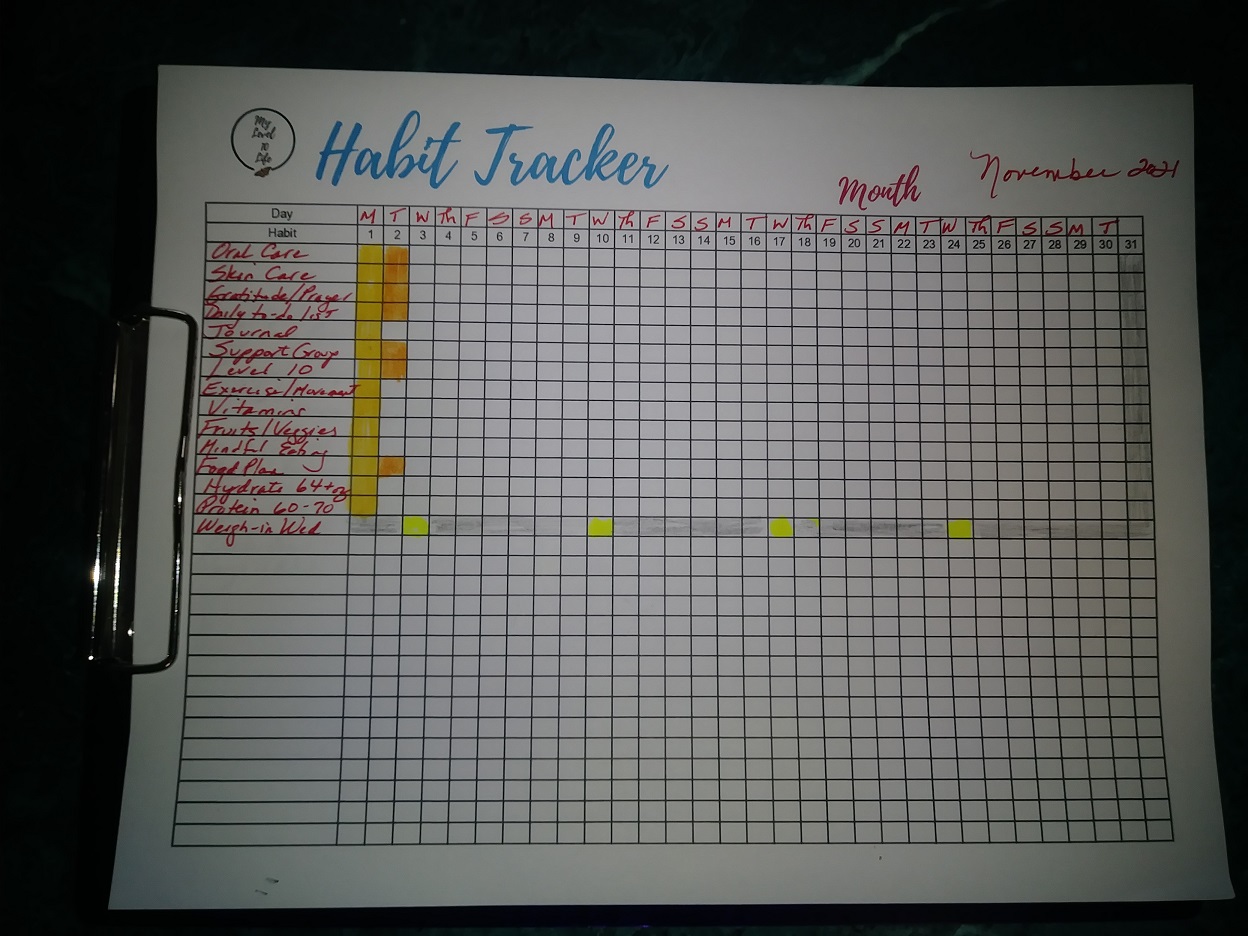 My
Level
10
Life
Habit Tracker
Month November 2021
Day M T W Th F S S M T W Th F S S M T W Th F S S M T W Th F S S M T
Habit 1 2 3 4 5 6 7 8 9 10 11 12 13 14 15 16 17 18 19 20 21 22 23 24 25 26 27 28 29 30 31
Oral Care
Skin Care
Gratitude/Prayer
Daily to-do list
Journal
Support Group
Level 10
Exercise/Movement
Vitamins
Fruits/Veggies
Mindful Eating
Food Plan
Hydrate 64+oz
Protein 60-70
Weigh-in Wed